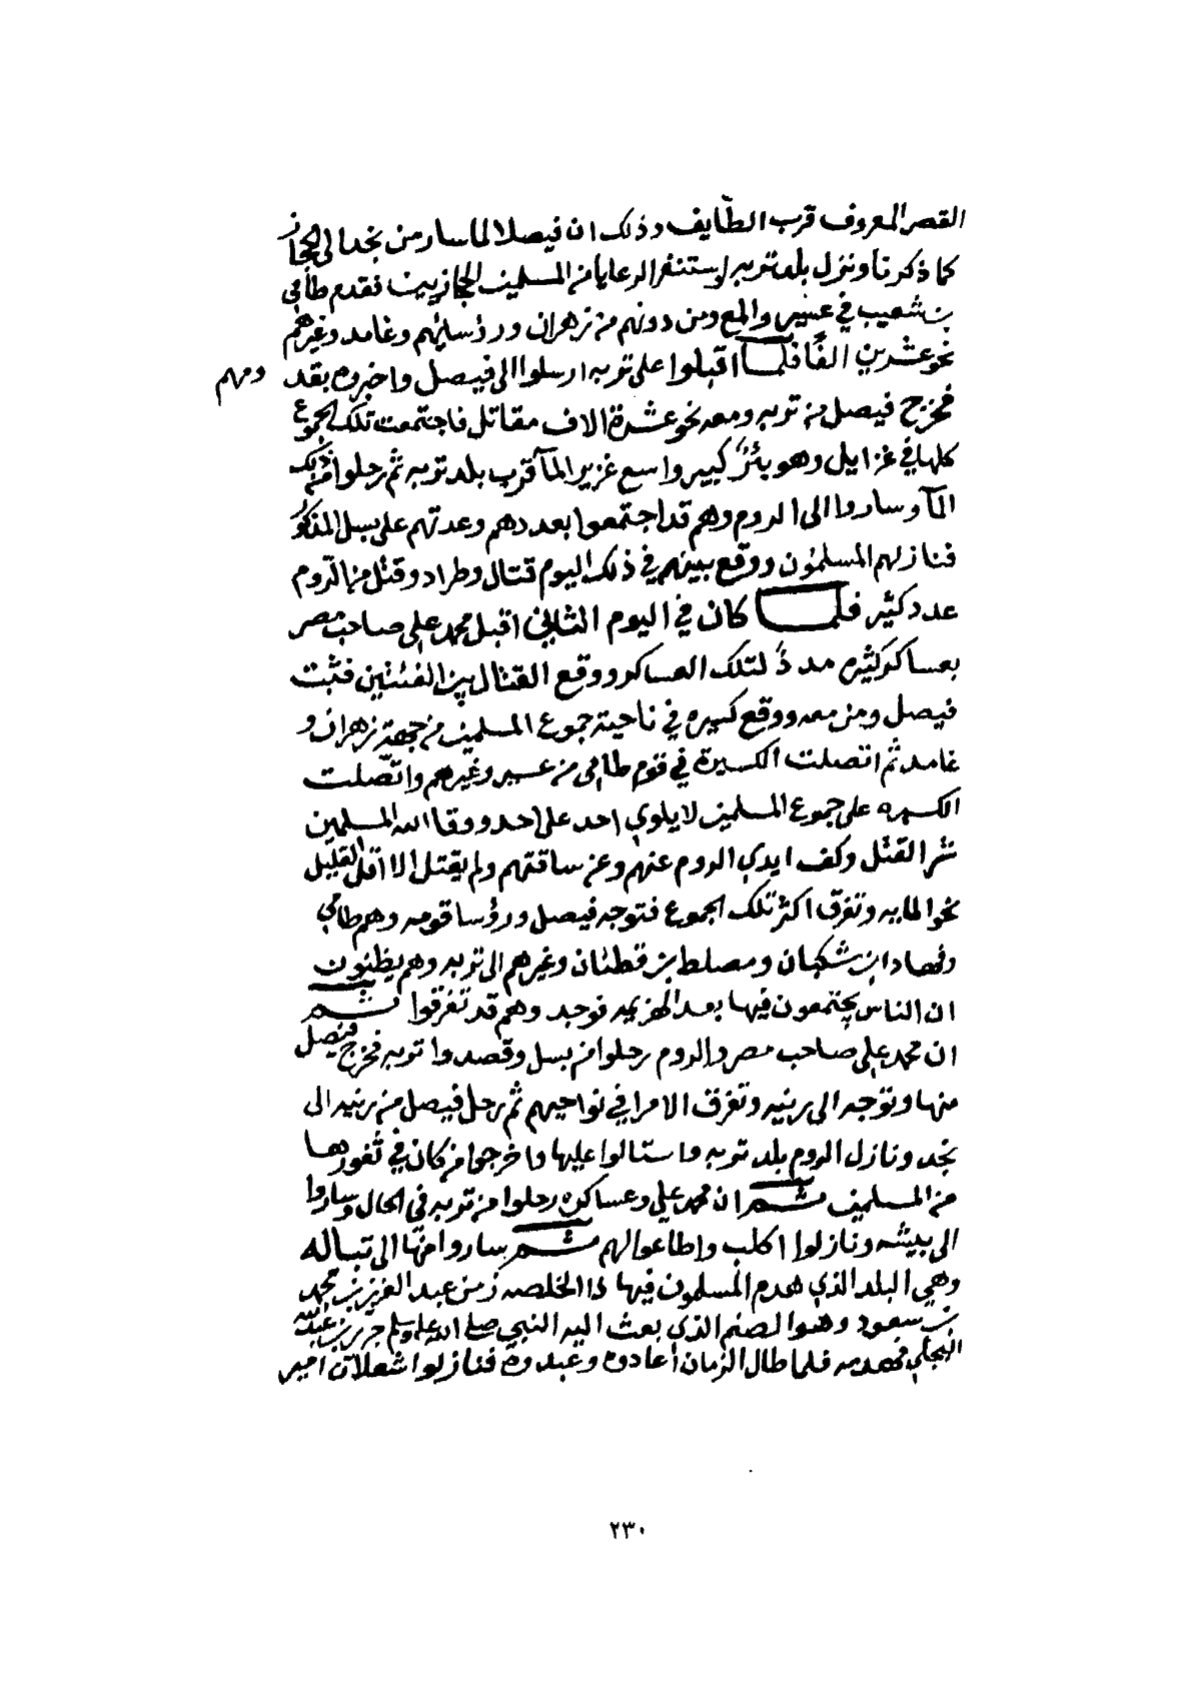 القصر المعروف قرب الطّايف وذلك ان فيصلا لما سار من نجد الى الحجاز
كما ذكرنا ونزل بلد تربه استنفر الرعايا من المسلمين الحجازيين فقدم طامي
بن شعيب في عسير والمع ومن دونهم من زهران ورؤسائهم وغامد وغيرهم
نحو عشرين الفًا فلما اقبلوا على تربه ارسلوا الى فيصل واخبروه بقد
ومهم
فخرج فيصل من تربه ومعه نحو عشرة الاف مقاتل فاجتمعت تلك الجموع
كلها في غزايل وهو بئرٌ كبير واسع غزير المآ قرب بلد تربه ثم رحلوا من ذلك
المآ وساروا الى الروم وهم قد اجتمعوا بعددهم وعدتهم على بسل المذكور
فنازلهم المسلمون ووقع بينهم في ذلك اليوم قتال وطراد وقتل من الروم
عدد كثير فلما كان في اليوم الثاني اقبل محمد علي صاحب مصر
بعساكر كثيره مددًا لتلك العساكر ووقع القتال بين الفئتين فثبت
فيصل ومن معه ووقع كسيره في ناحية جموع المسلمين من جهة زهران و
غامد ثم اتصلت الكسيرة في قوم طامي من عسير وغيرهم واتّصلت
الكسيره على جموع المسلمين لا يلوي احد على احد ووقا الله المسلمين
شر القتل وكف ايدي الروم عنهم وعن ساقتهم ولم يقتل الا اقل القليل
نحو المايه وتفرق اكثر تلك الجموع فتوجه فيصل ورؤسا قومه وهم طامي
وفهاد ابن شكبان ومصلط بن قطنان وغيرهم الى تربه وهم يظنون
ان الناس يجتمعون فيها بعد الهزيمه فوجد وهم قد تفرقوا ثم
ان محمد علي صاحب مصر والروم رحلوا من بسل وقصدوا تربه فخرج فيصل
منها وتوجه الى رنيه وتفرق الامرا في نواحيهم ثم رحل فيصل من رنيه الى
نجد ونازل الروم بلد تربه واستالوا عليها واخرجوا من كان في ثغورها
من المسلمين ثم ان محمد علي وعساكره رحلوا من تربه في الحال وساروا
الى بيشه ونازلوا اكلب واطاعوا لهم ثم ساروا منها الى تباله
وهي البلد الذي هدم المسلمون فيها ذا الخلصه زمن عبد العزيز بن محمد
بن سعود وهو الصنم الذي بعث اليه النبي صلى الله عليه وسلم جرير بن عبد الله
البجلي فهدمه فلما طال الزمان اعادوه وعبدوه فنازلوا شعلان امير
٢٣٠